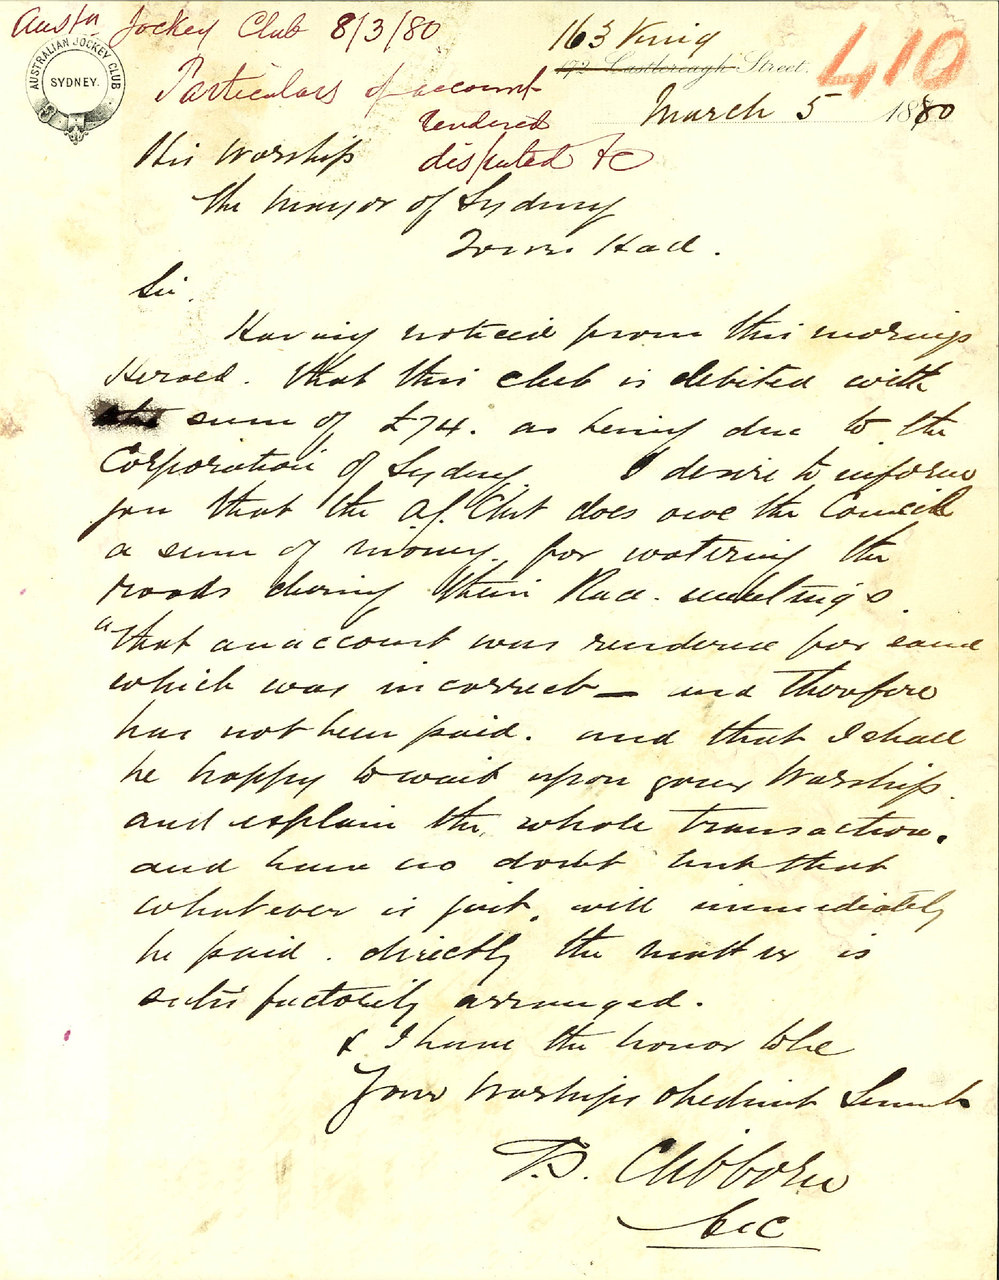 Austn Jockey Club 8/3/80
Particulars of account
rendered
disputed &c
AUSTRALIAN JOCKEY CLUB
SYDNEY.
163 King
192 Castlereagh Street,
410
March 5 1880
His Worship
The Mayor of Sydney
Town Hall.
Sir.
Having noticed from this mornings
Herald. that this club is debited with
the sum of £74. as being due to the
Corporation of Sydney I desire to inform
you that the A.J. Club does owe the Council
a sum of money. for watering the
roads during their Race. meetings.
"that an account was rendered for same
which was incorrect — and therefore
has not been paid. and that I shall
be happy to wait upon your Worship.
and explain the whole transaction.
and have no doubt but that
whatever is just. will immediately
be paid. directly the matter is
satisfactorily arranged.
& I have the honor to be
Your Worships obedient Servant
T.S. Clibborn
Sec